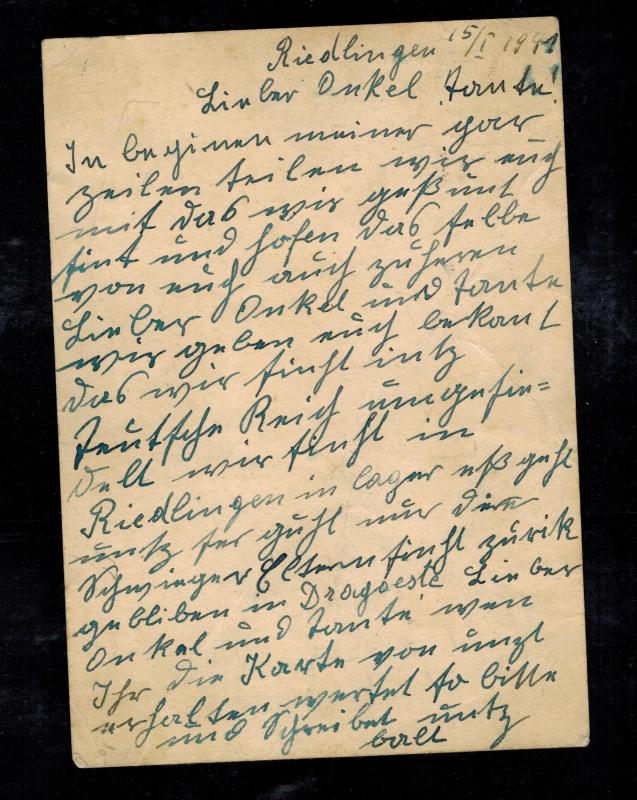 Riedlingen 15/I 1941
Lieber Onkel, Tante!
In beginen meiner par
zeilen teilen wir euch
mit das wir geßunt
sint und hofen das selbe
von euch auch zuheren
Lieber Onkel und Tante
wir geben euch bekant
das wir sinht intz
Teutsche Reich umgesie=
delt wir sinht in
Riedlingen in lager eß geht
untz ser guht nur die
Schwieger Eltern sinht zurik
gebliben in Dragoeste Lieber
Onkel und Tante wen
Ihr die Karte von unzt
erhalten wertet so bitte
und Schreibet untz
balt